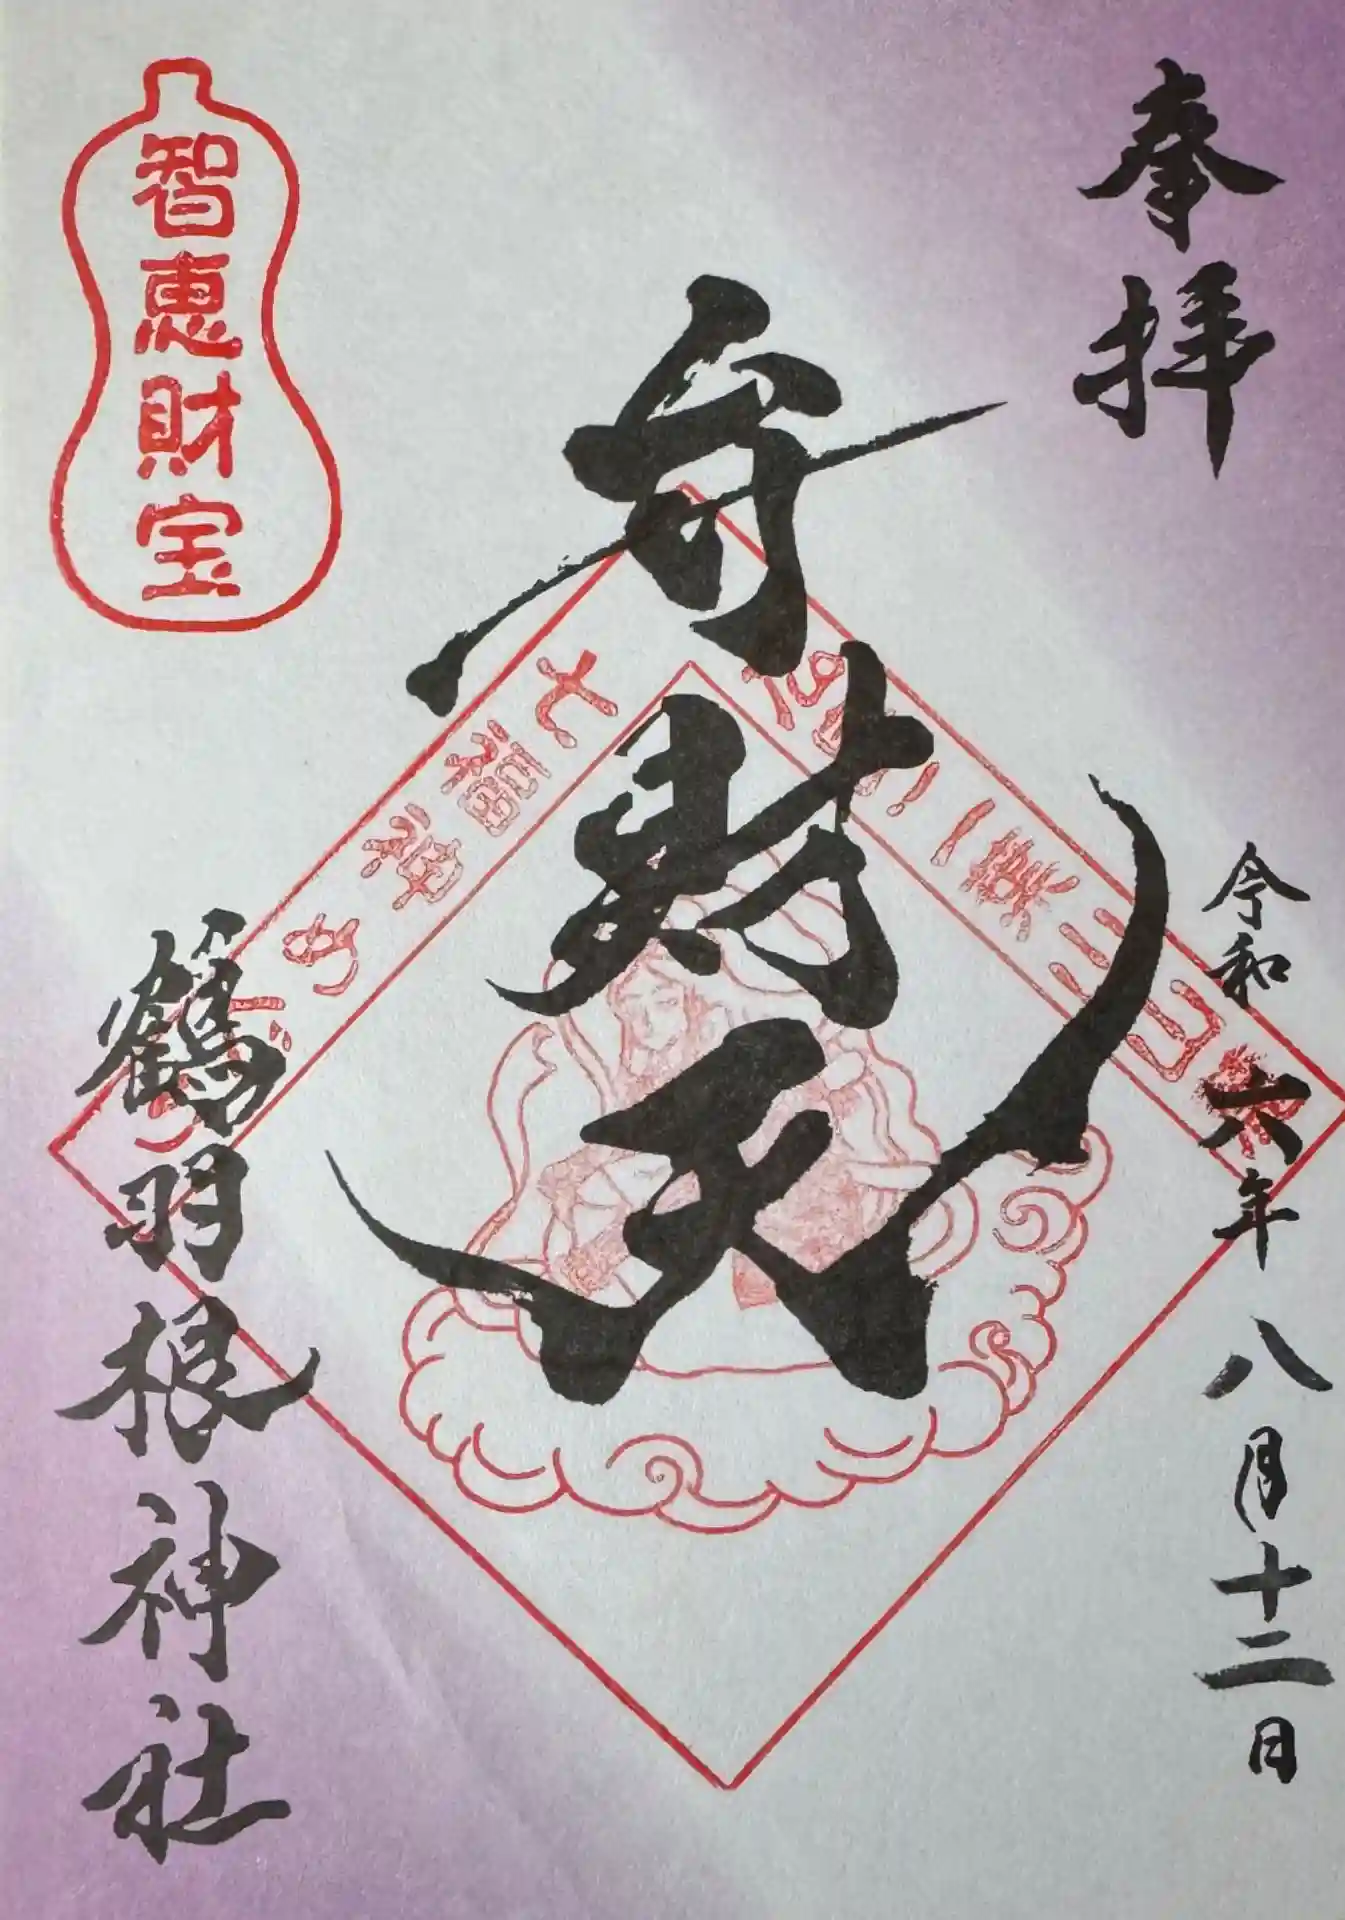 奉拝
令和六年八月十二日
弁財天
七福神めぐり
智恵財宝
鶴羽根神社